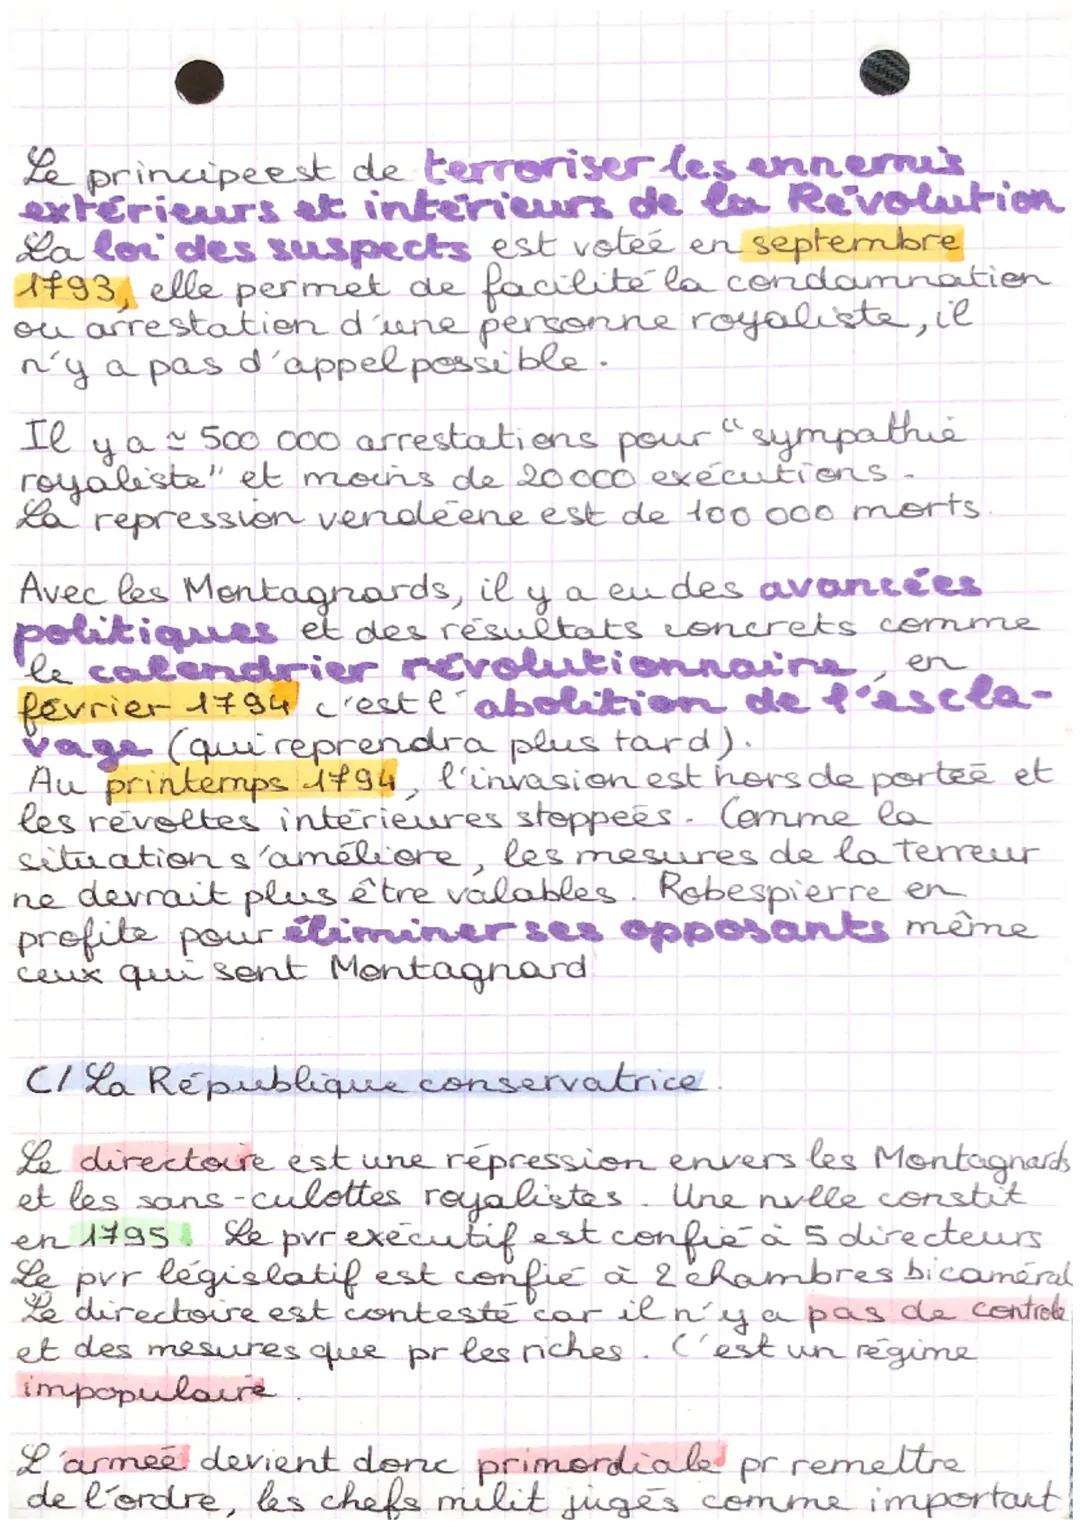 Le principe est de terroriser les ennemis
extérieurs et intérieurs de la Révolution
La loi des suspects est votée en septembre
1793, elle permet de facilité la condamnation
ou arrestation d'une personne royaliste, il
n'y a pas d'appel possible.
Il y a ≃ 500 000 arrestations pour "sympathie
royaliste" et moins de 20000 exécutions.
La repression vendéene est de 100 000 morts.
Avec les Montagnards, il y a eu des avancées
politiques et des résultats concrets comme
le calendrier révolutionnaire, en
février 1794 c'est l'abolition de l'escla-
vage (qui reprendra plus tard).
Au printemps 1794, l'invasion est hors de portée et
les révoltes intérieures stoppées. Comme la
situation s'améliore, les mesures de la terreur
ne devrait plus être valables. Robespierre en
profite pour éliminer ses opposants même
ceux qui sont Montagnard
C/ La République conservatrice.
Le directoire est une répression envers les Montagnards
et les sans-culottes royalistes. Une nvlle constit
en 1795. Le pvr exécutif est confié à 5 directeurs
Le pvr législatif est confié à 2 chambres bicaméral
Le directoire est contesté car il n'y a pas de controle
et des mesures que pr les riches. C'est un régime
impopulaire.
L'armée devient donc primordiale pr remettre
de l'ordre, les chefs milit jugés comme important